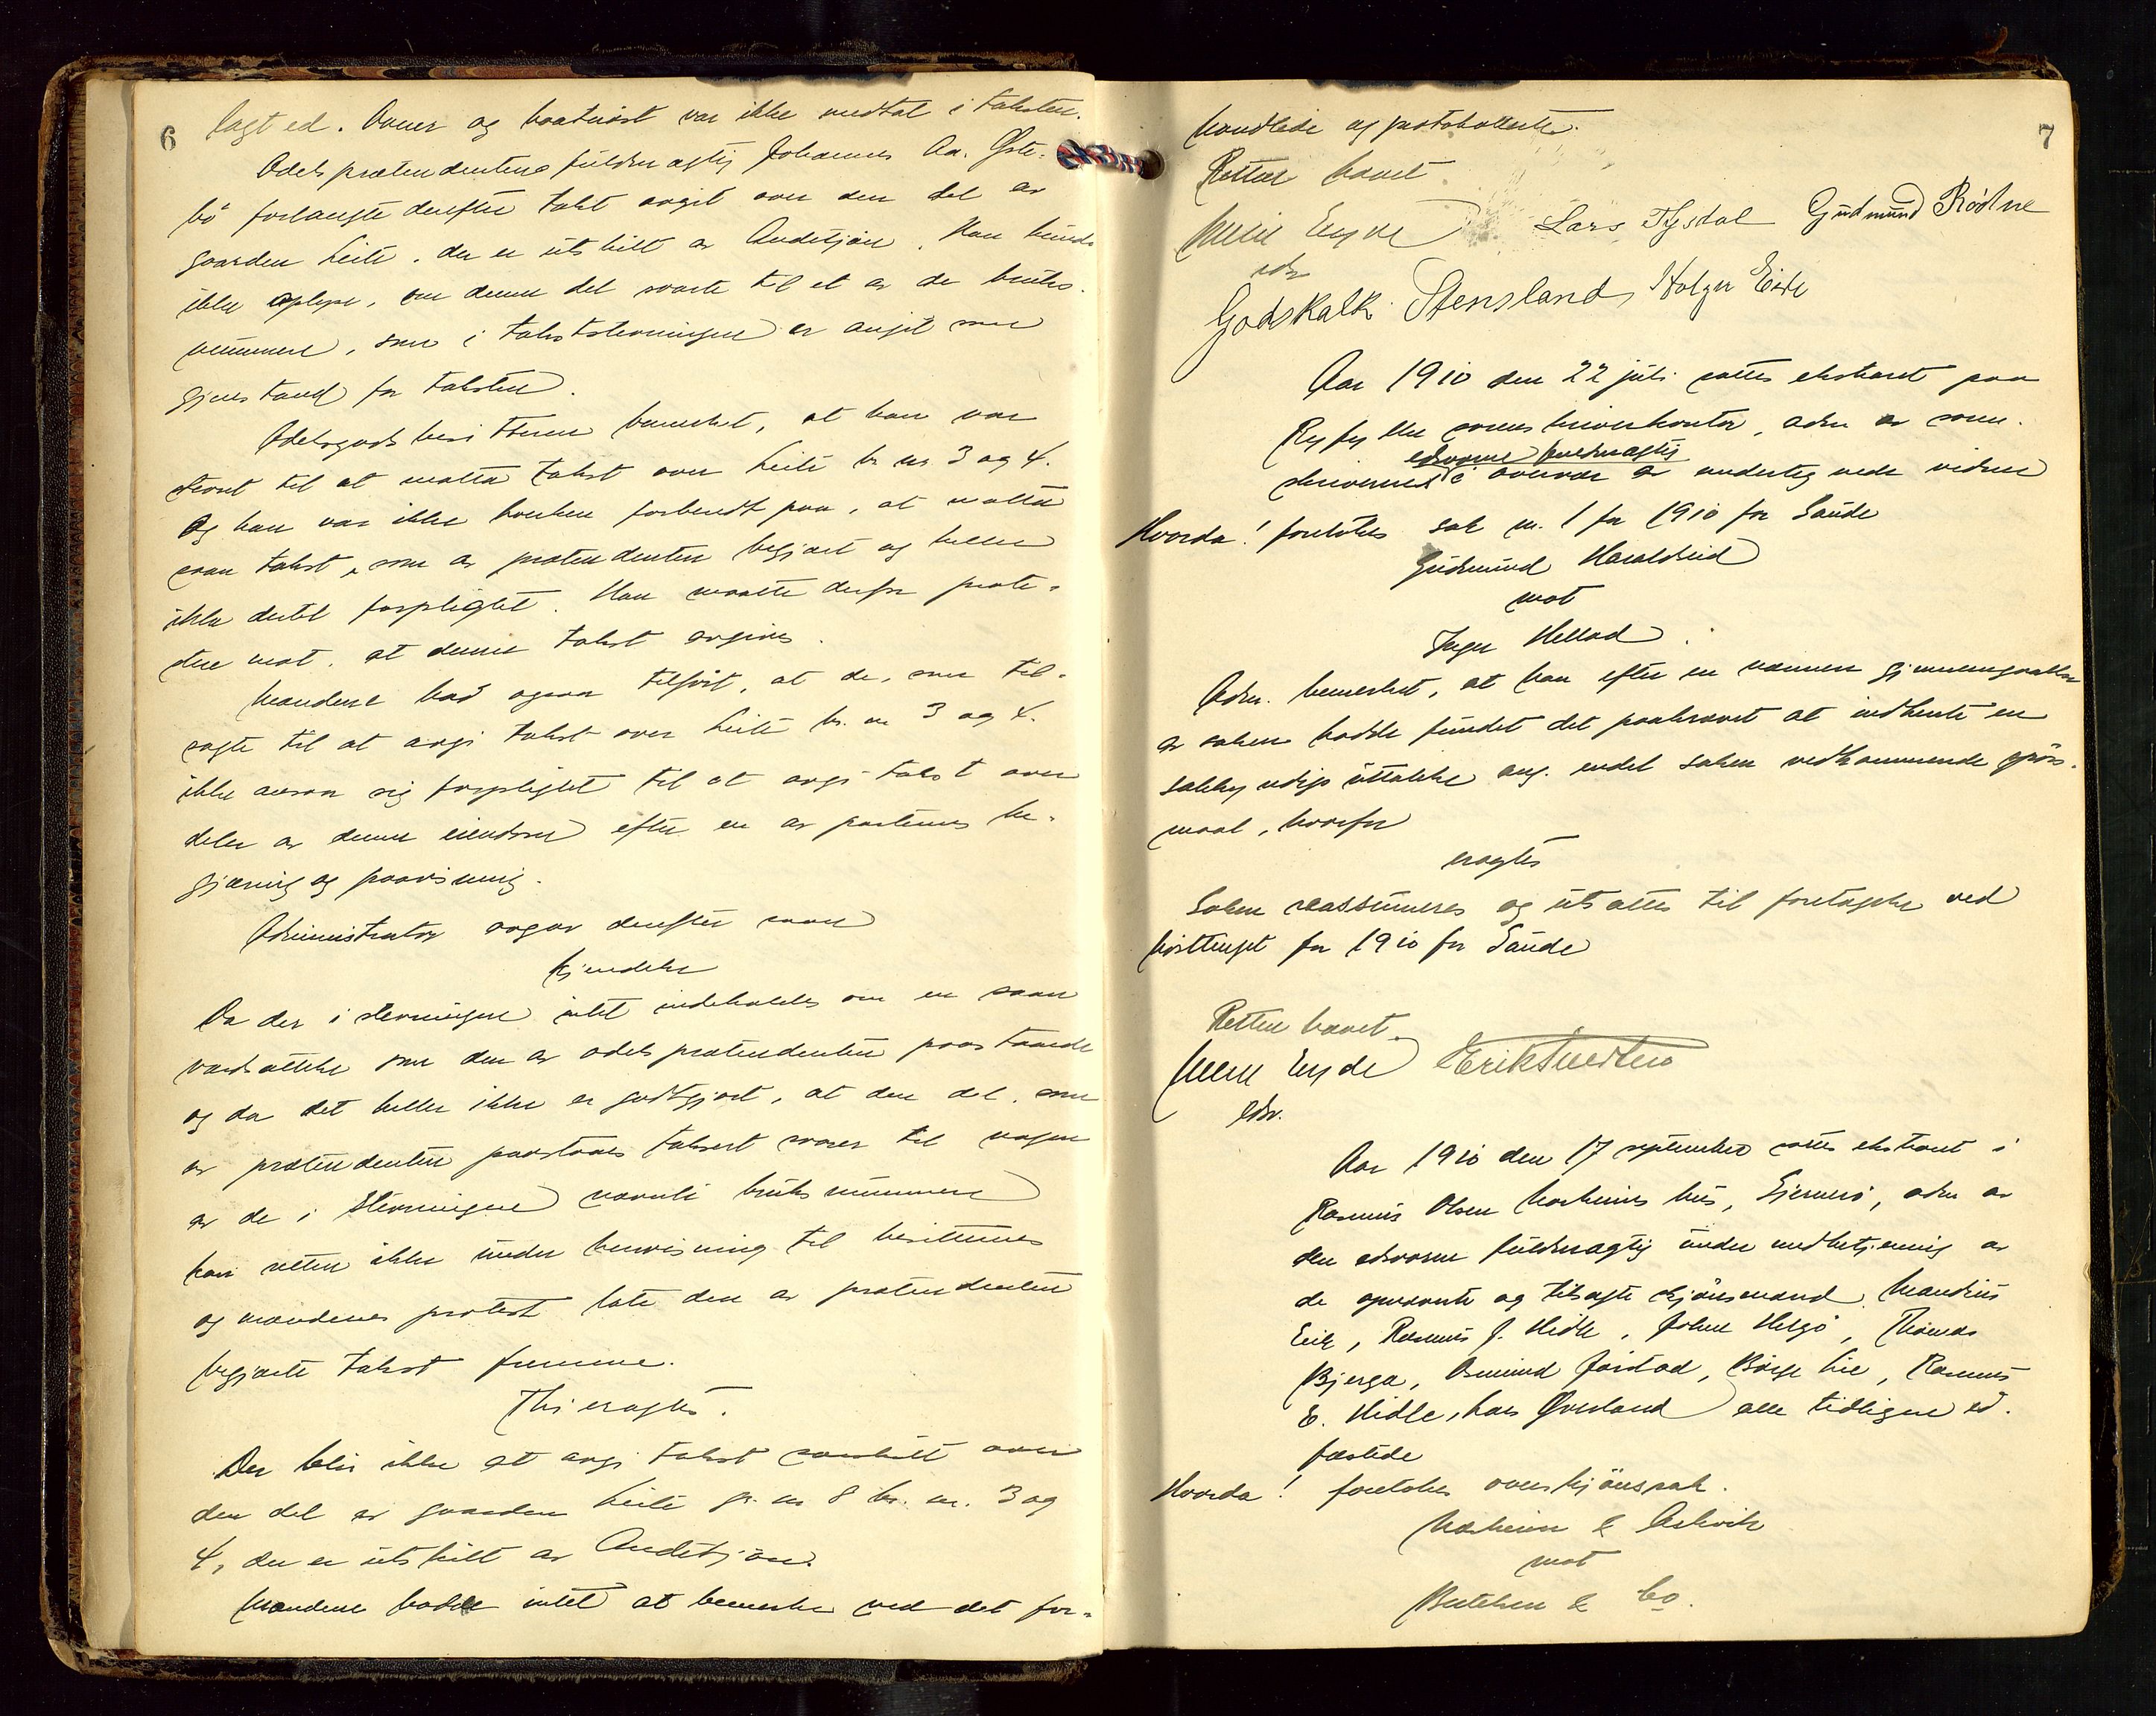 6
lagt ed. Ovner og baatnöst var ikke medtat i taksten.
Odelspretendentens fuldmægtig Johannes Aa. Öste-
bö forlangte derefter takst avgit over den del av
gaarden Leite, der er utskilt av Andetjön. Han kunde
ikke oplyse, om denne del svarte til et av de bruks-
nummere, som i takststevningen er angit som
gjenstand for taksten.
Odelsgodsbesitteren bemerket, at han var
stevnt til at motta takst over Leite br. nr 3 og 4.
Og han var ikke hverken forberedt paa, at motta
saan takst, som av pretendenten begjært og heller
ikke dertil forpligtet. Han maatte derfor prote-
stere mot, at denne takst avgives.
Mændene bad ogsaa tilfört, at de, som til-
sagte til at avgi takst over Leite br. nr 3 og 4.
ikke ansaa sig forpligtet til at avgi takst over
deler av denne eiendom efter en av partenes be-
gjæring og paavisning.
Administrator avgav derefter saan
kjendelse
Da der i stevningen intet indeholdes om en saan
verdsættelse som den av odelspretendenten paastaaede
og da det heller ikke er godtgjort, at den del, som
av pretendenten paastaaes taksert svarer til nogen
av de i stevningen nævnte bruksnummere
kan retten ikke under henvisning til besitterens
og mændenes protest late den av pretendenten
begjærte takst fremme.
Thi eragtes.
Der blir ikke at avgi takst særskilt over
den del av gaarden Leite gr. nr 8 br. nr. 3 og
4, der er utskilt av Andetjön.
Mændene hadde intet at bemerke ved det for-
7
handlede og protokollerte.
Retten hævet
Eyde Lars Tysdal Gudmund Rødne
edsv
Godskalk Stensland, Holger Eide
Aar 1910 den 22 juli sattes ekstraret paa
Ryfylke sorenskriverkontor, adm av soren-
edsvorne fuldmægtig
skriverens i overvær av undertegnede vidner
Hvorda! foretokes sak nr. 1 for 1910 for Saude
Gudmund Haraldseid
mot
Inger Helland.
Adm. bemerket, at han efter en nærmere gjennemgaaelse
av saken hadde fundet det paakrævet at indhente en
sakkyndigs uttalelse ang. endel saken vedkommende spörs-
maal, hvorfor
eragtes
Saken reassumeres og utsættes til foretagelse ved
hösttinget for 1910 for Saude
Retten hævet.
Eyde Erik
edsv.
Aar 1910 den 17 september sattes ekstraret i
Rasmus Olsen Maskeims hus, Hjelmeö, adm av
den edsvorne fuldmægtig under medbetjening av
de opnævnte og tilsagte skjönsmænd Mandius
Eik, Rasmus J. Hidle, Johan Helgö, Thomas
Bjerga, Osmund Jörstad, Börge Lie, Rasmus
E. Hidle, Lars Överland alle tidligere ed-
fæstede
Hvorda! foretokes overskjönssak.
Maskeim & Askvik
mot
& Co.